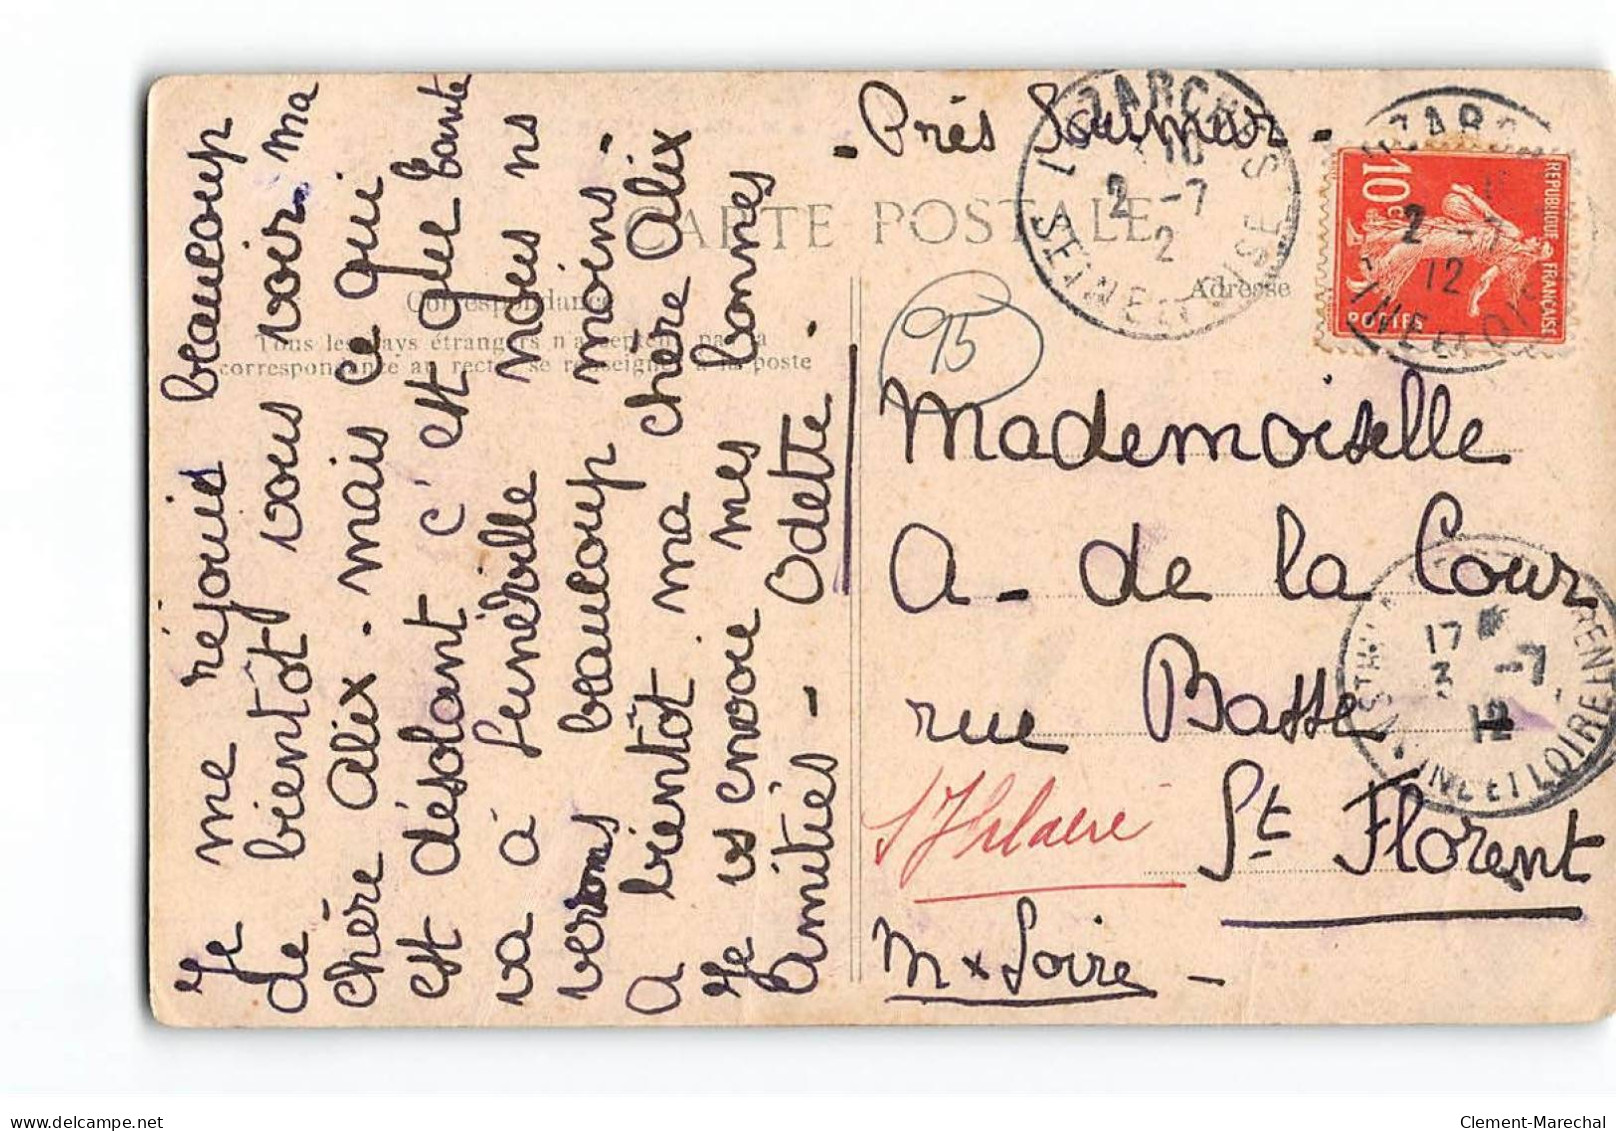 Je me réjouis beaucoup
de bientôt vous voir ma
chère Alix. mais ce qui
est désolant c'est que tante
va à Lunéville nous ns
verrons beaucoup moins.
A bientôt ma chère Alix
Je vs envoie mes bonnes
amitiés - Odette.
- Près Saumur -
CARTE POSTALE
Correspondance
Adresse
Tous les pays étrangers n'acceptent pas la
correspondance au recto, se renseigner à la poste
95
LUZARCHES
10
2 -7
12
SEINE ET OISE
REPUBLIQUE FRANÇAISE
10c
POSTES
LUZARCHES
2 -7
12
SEINE ET OISE
Mademoiselle
A- de la Cour
rue Basse
St Hilaire
St Florent
M & Loire -
17
3 -7
12
ET LOIRE
delcampe.net
Clement-Marechal